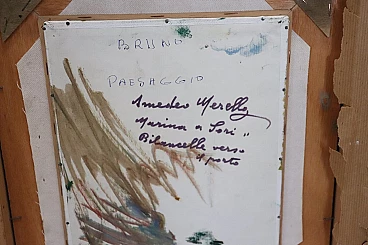 BRUNO
PAESAGGIO
Amedeo Merello
Marina a Sori "
Bilancelle verso
il porto